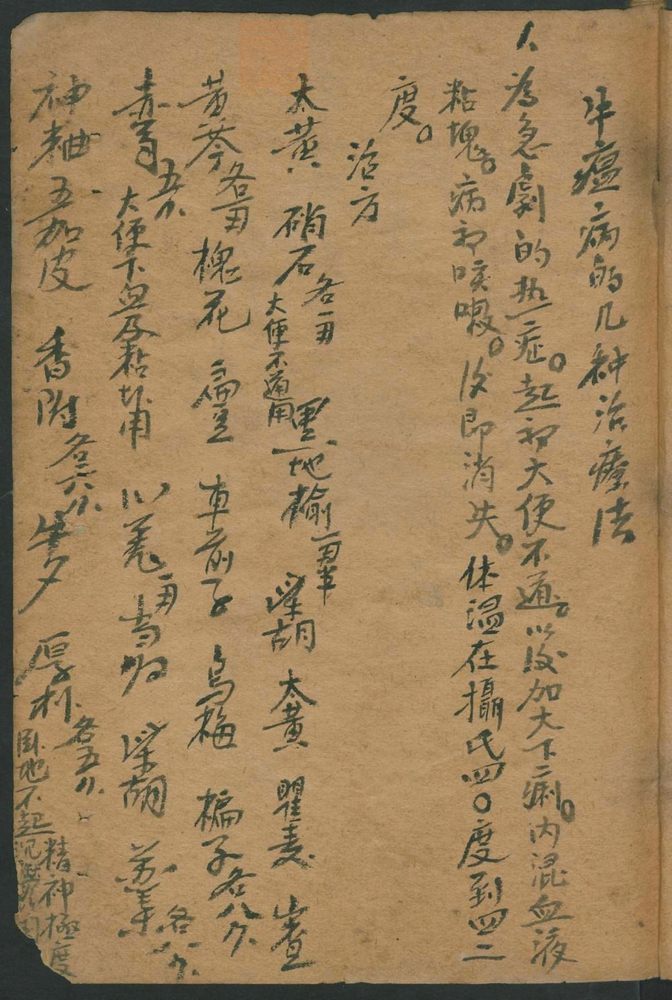 牛瘟病的几种治療法
1、為急劇的热症。起初大便不通。以後加大下痢。内混血液
粘塊。病初咳嗽。後即消失。体温在攝氏四〇度到四二
度。
治方
大黄 硝石各一両 大便不通用 黑地榆一両半 柴胡 大黄 瞿麦 山查
黄芩各一両 槐花 扁豆 車前子 烏梅 楄子各八分
青皮五分 大便下血及粘塊用 川羌一両 当归 柴胡 苏叶各八分
神粬 五加皮 香附各六分 厚朴各五分 精神極度
卧地不起